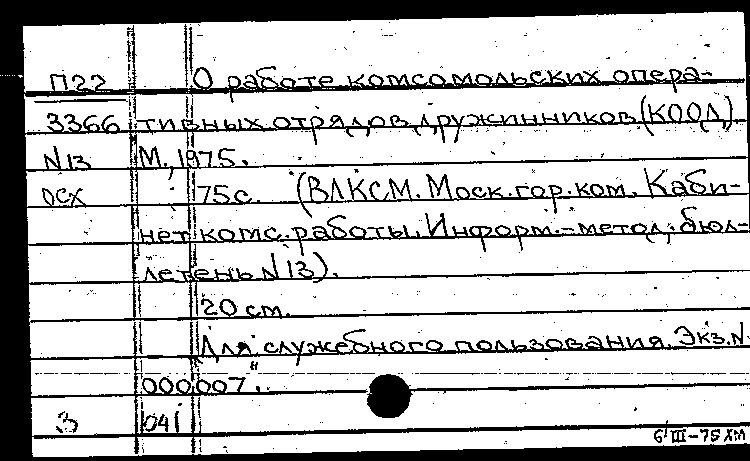 П22 О работе комсомольских опера-
3366 тивных отрядов дружинников (КООД)
N13 М., 1975.
осх 75с. (ВЛКСМ. Моск. гор. ком. Каби-
нет комс. работы. Информ.-метод. бюл-
летень N13).
20 см.
"Для служебного пользования. Экз. N
000007".
3 041
6/III-75 ХМ